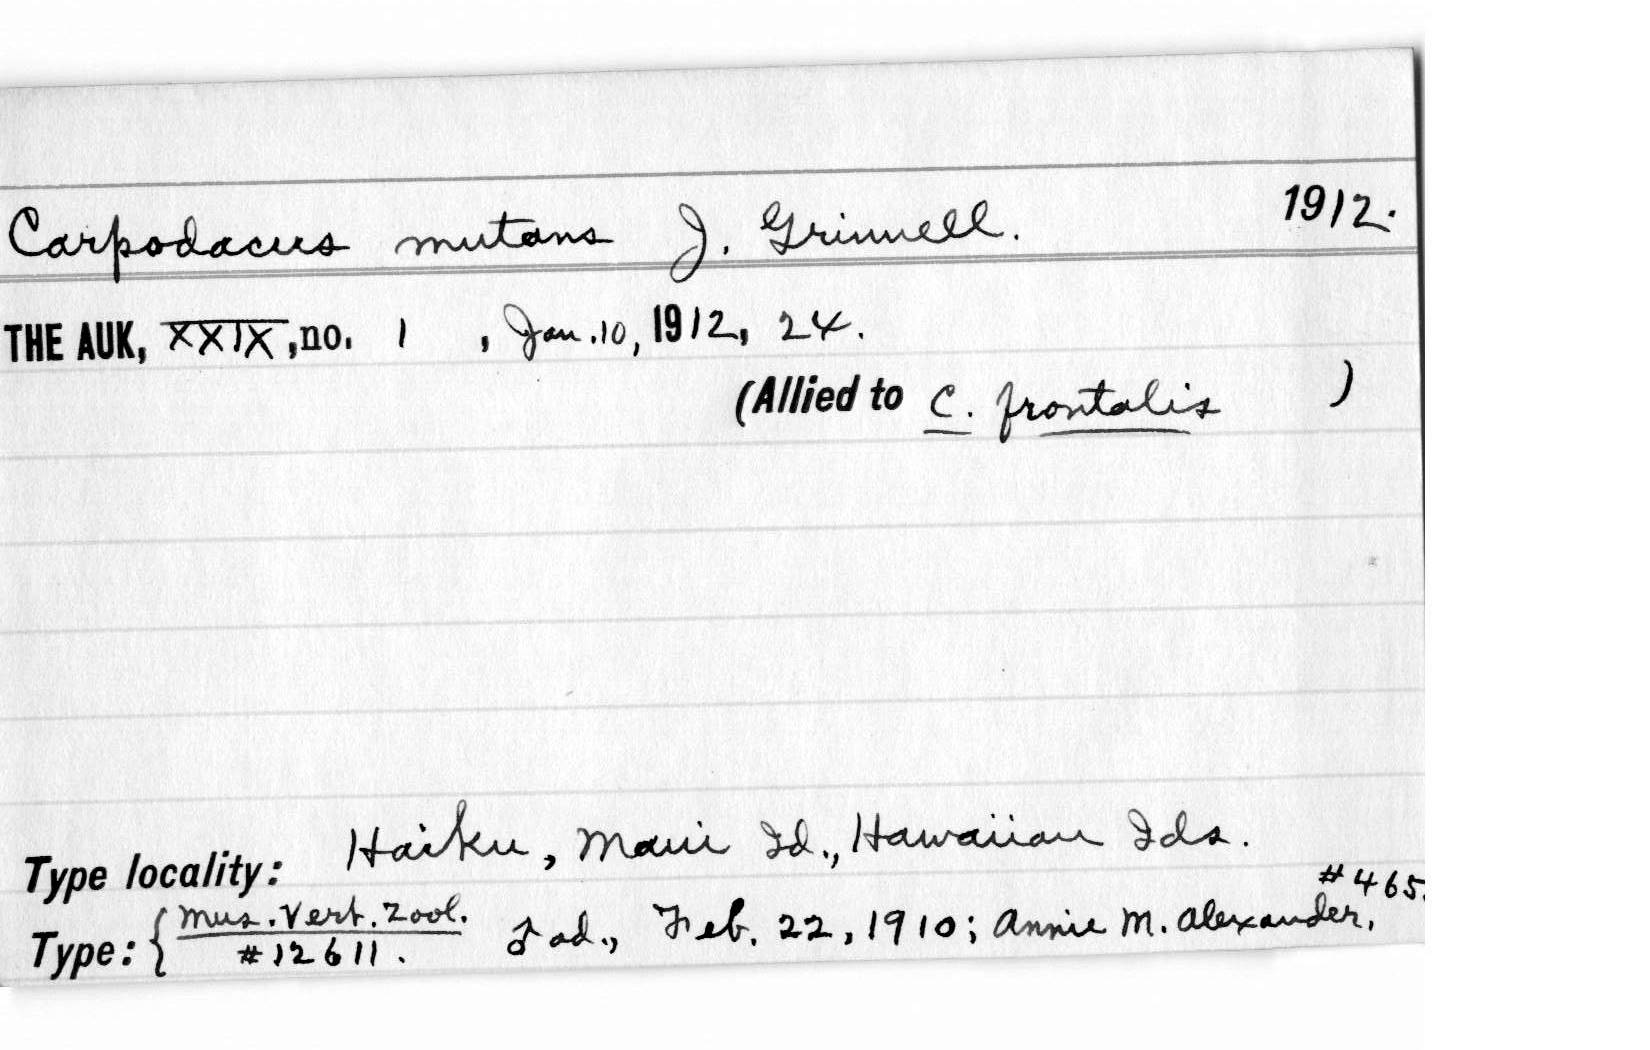 Carpodacus mutans J. Grinnell. 1912.
THE AUK, XXIX, no. 1, Jan. 10, 1912, 24.
(Allied to C. frontalis )
Type locality: Haiku, Maui Id., Hawaiian Ids.
#465.
Type: { Mus. Vert. Zool. ♂ ad., Feb. 22, 1910; Annie M. Alexander,
#12611.